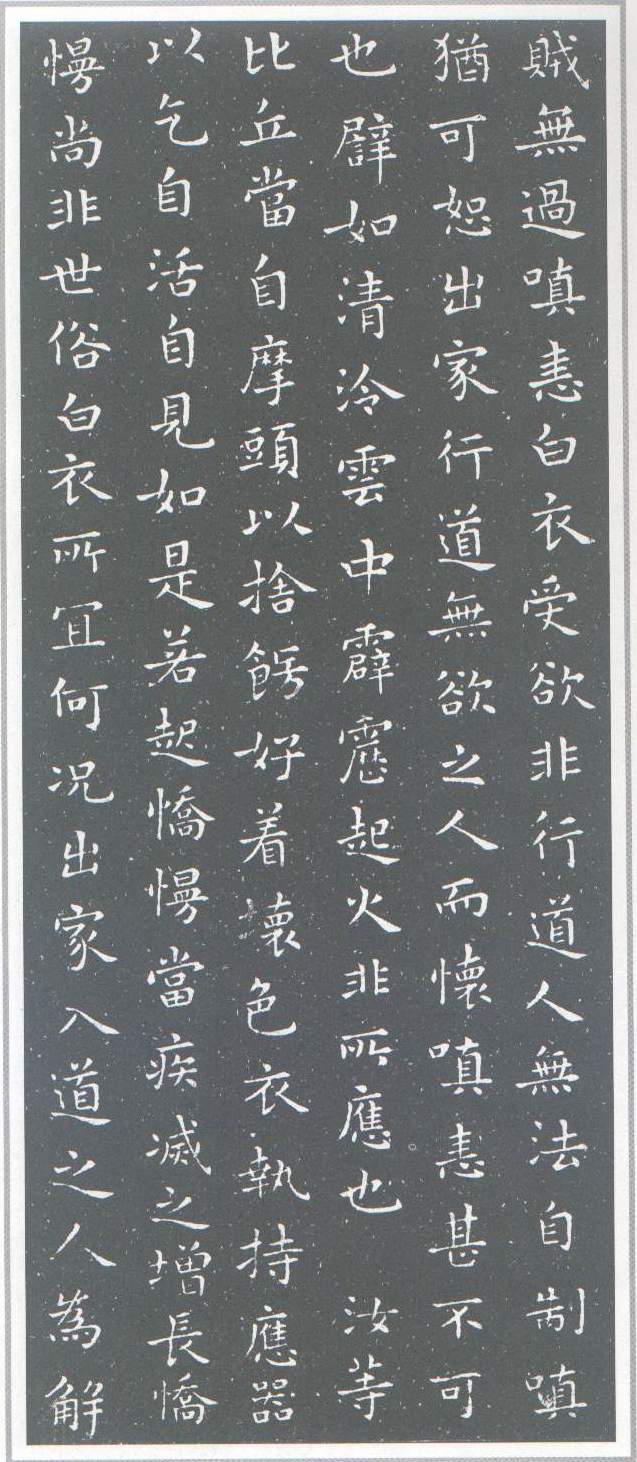 賊無過嗔恚白衣受欲非行道人無法自制嗔
猶可恕出家行道無欲之人而懷嗔恚甚不可
也譬如清冷雲中霹靂起火非所應也 汝等
比丘當自摩頭以捨餝好着壞色衣執持應器
以乞自活自見如是若起憍慢當疾滅之增長憍
慢尚非世俗白衣所冝何况出家入道之人為解